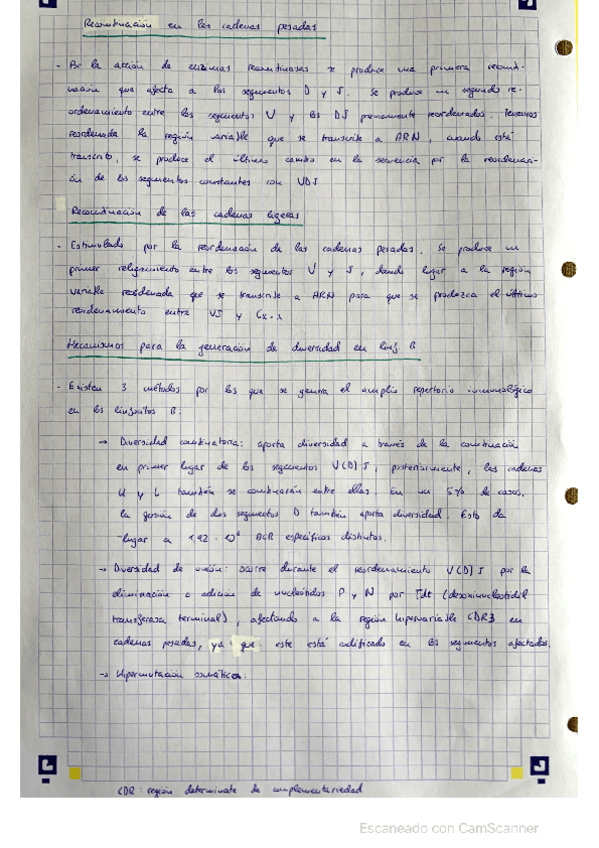 Recombinación en las cadenas pesadas
- Por la acción de enzimas recombinasas se produce una primera recombi-
nación que afecta a los segmentos D y J. Se produce un segundo re-
ordenamiento entre los segmentos V y los DJ previamente reordenados. Tenemos
reordenada la región variable que se transcribe a ARN, cuando está
transcrito, se produce el último cambio en la secuencia por la reordenaci-
ón de los segmentos constantes con VDJ
Recombinación de las cadenas ligeras
- Estimulado por la reordenación de las cadenas pesadas. Se produce un
primer religamiento entre los segmentos V y J, dando lugar a la región
variable reordenada que se transcribe a ARN para que se produzca el último
reordenamiento entre VJ y
Mecanismos para la generación de diversidad en linf. B
- Existen 3 métodos por los que se genera el amplio repertorio inmunológico
en los linfocitos B:
→ Diversidad combinatoria: aporta diversidad a través de la combinación
en primer lugar de los segmentos V(D)J, posteriormente, las cadenas
H y L también se combinarán entre ellas. En un 5% de casos,
la fusión de dos segmentos D también aporta diversidad. Esto da
lugar a 1,92 · 10⁶ BCR específicos distintos.
→ Diversidad de unión: ocurre durante el reordenamiento V(D)J por la
eliminación o adición de nucleótidos P y N por Tdt (desoxinucleotidil
transferasa terminal), afectando a la región hipervariable CDR3 en
cadenas pesadas, ya que este está codificado en los segmentos afectados.
→ Hipermutación somática:
CDR: región determinate de complementariedad
Escaneado con CamScanner